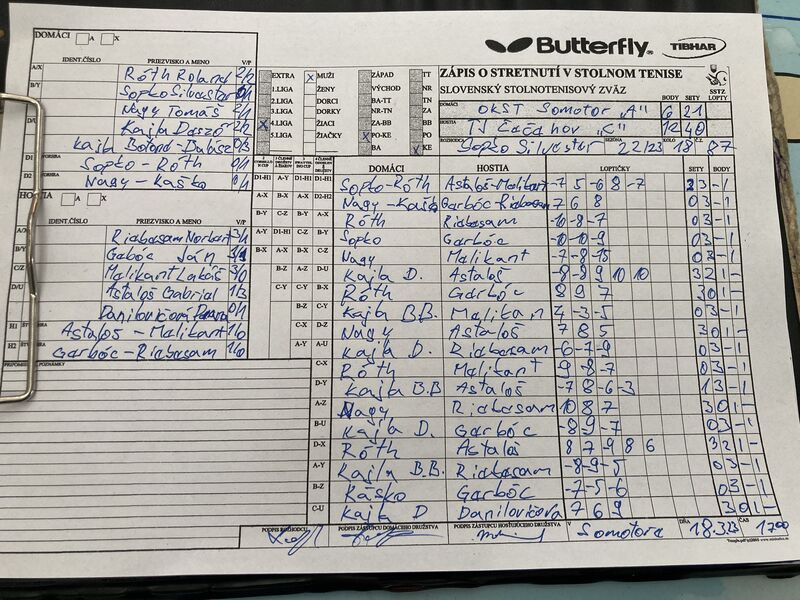 DOMÁCI A X
IDENT.ČÍSLO PRIEZVISKO A MENO V/P
A/X Róth Roland 2/2
B/Y Sopko Silvester 0/1
Nagy Tomáš
D/U Kajla Dezső 2/2
Kajla Botond-Balasz 0/3
D1 Sopko - Róth 0/1
D2 Nagy - Kaško 0/1
HOSTIA A X
IDENT.ČÍSLO PRIEZVISKO A MENO V/P
A/X Riabasam Norbert 3/1
B/Y Garbóc Ján 3/1
C/Z Malikant Lukáš 3/0
D/U Astaloš Gabriel 1/3
Danilovičová 0/1
H1 Astaloš - Malikant 1/0
H2 Garbóc - Riabasam 1/0
POZNÁMKY
Butterfly TIBHAR
EXTRA X MUŽI ZÁPAD TT
1.LIGA ŽENY VÝCHOD NR
2.LIGA DORCI BA-TT TN
3.LIGA DORKY NR-TN ZA
X 4.LIGA ŽIACI ZA-BB BB
5.LIGA ŽIAČKY X PO-KE PO
BA KE
ZÁPIS O STRETNUTÍ V STOLNOM TENISE
SLOVENSKÝ STOLNOTENISOVÝ ZVÄZ SSTZ
BODY SETY LOPTY
DOMÁCI OKST Somotor "A" 6 21
HOSTIA TJ Čačahov "C" 12 40
ROZHODCA Sopko Silvester SEZÓNA 22/23 KOLO 18 Č.Z. 87
DOMÁCI HOSTIA LOPTIČKY SETY BODY
D1-H1 Sopko-Róth Astaloš-Malikant -7 5 -6 8 -7 23 -1
D2-H2 Nagy-Kaško Garbóc-Riabasam -7 6 8 03 -1
A-X Róth Riabasam -10 -8 -7 03 -1
B-Y Sopko Garbóc -10 -10 -9 03 -1
C-Z Nagy Malikant -7 -8 -15 03 -1
D-U Kajla D. Astaloš -8 -8 9 10 10 32 1-
B-X Róth Garbóc 8 9 7 30 1-
C-Y Kajla B.B. Malikant -4 -3 -5 03 -1
D-Z Nagy Astaloš 7 8 5 30 1-
A-U Kajla D. Riabasam -6 -7 -9 03 -1
C-X Róth Malikant -9 -8 -7 03 -1
D-Y Kajla B.B Astaloš -7 8 -6 -3 13 -1
A-Z Nagy Riabasam 10 8 7 30 1-
B-U Kajla D. Garbóc -8 -9 -7 03 -1
D-X Róth Astaloš 8 7 -9 8 6 32 1-
A-Y Kajla B.B. Riabasam -8 -9 -5 03 -1
B-Z Káško Garbóc -7 -5 -6 03 -1
C-U Kajla D Danilovičová 7 6 9 30 1-
PODPIS ROZHODCU PODPIS ZÁSTUPCU DOMÁCEHO DRUŽSTVA PODPIS ZÁSTUPCU HOSŤUJÚCEHO DRUŽSTVA V Somotore DŇA 18.3.23 ČAS 17:00